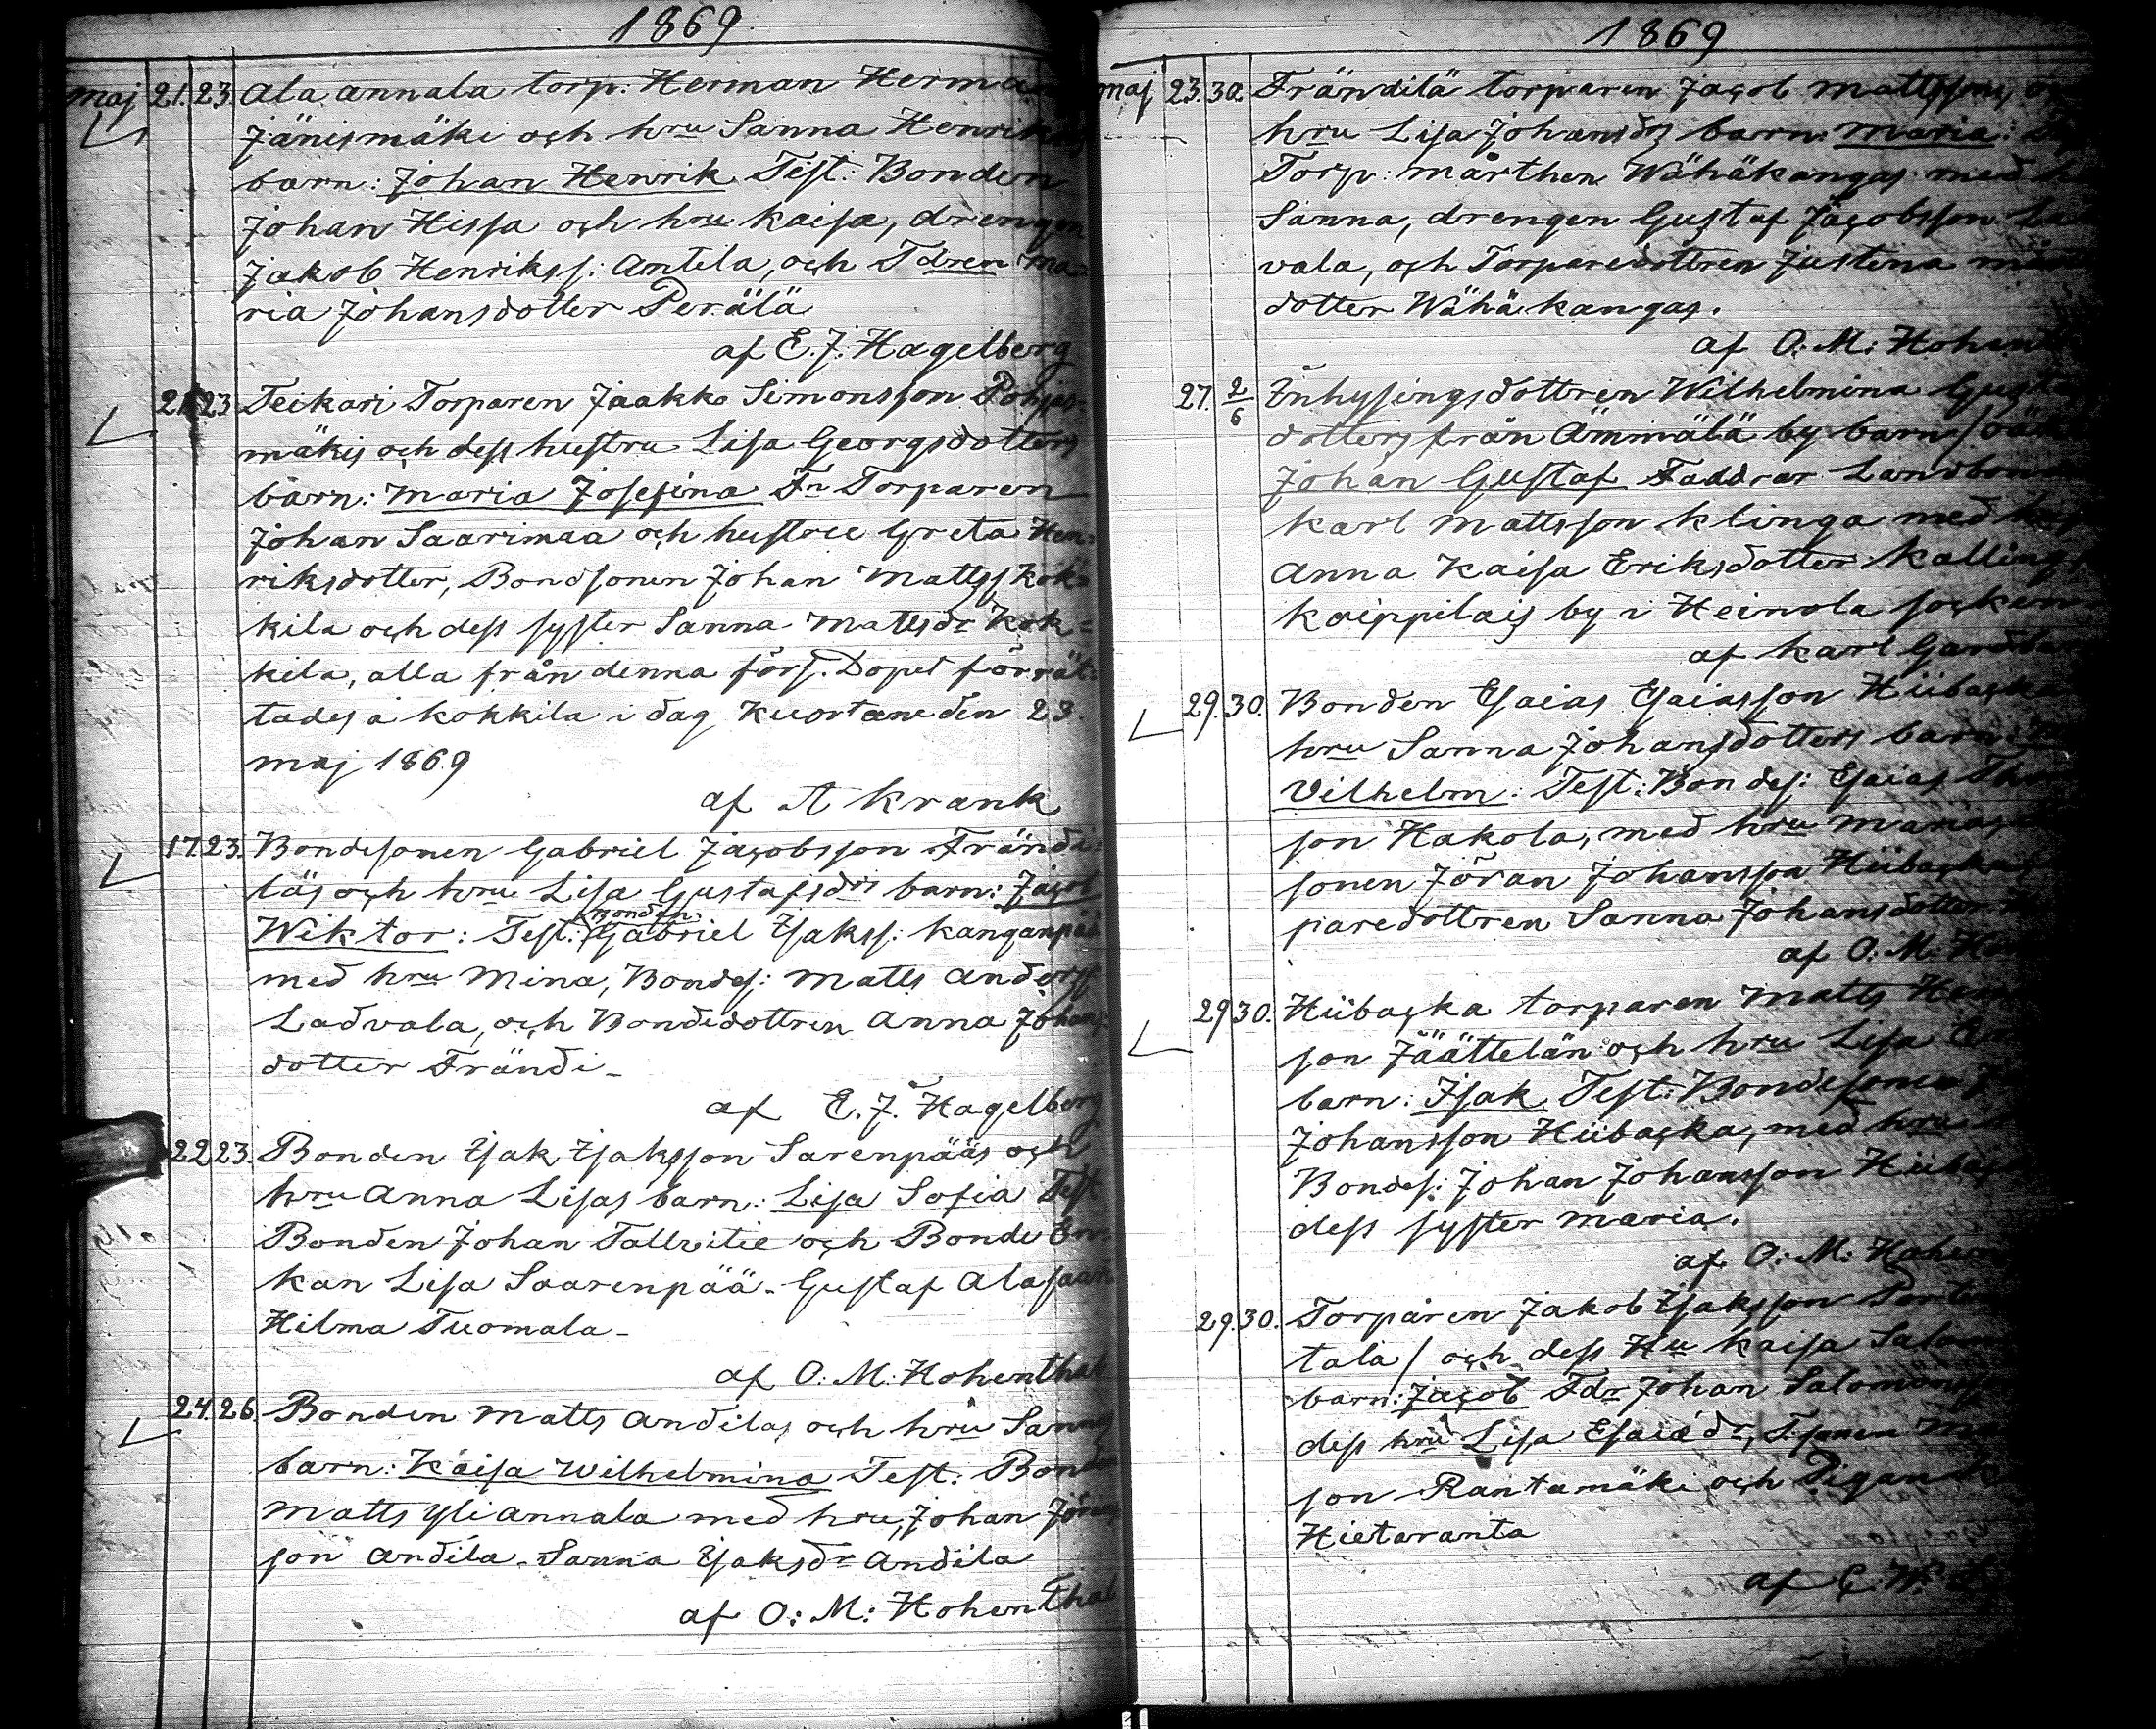 1869
maj 21. 23. Ala annala torp. Herman
Jänismäki och hru Sanna
barn: Johan Henrik Test: Bonden
Johan Hissa och hru Kaisa, drengen
Jakob Henrikss: Antila, och Tdren Ma-
ria Johansdotter Perälä
af E. J. Hagelberg
21 23 Teikari Torparen Jaakko Simonsson Pohjas-
mäkis och dess hustru Lisa Georgsdotters
barn: Maria Josefina Fr Torparen
Johan Saarimaa och hustru Greta Hen-
riksdotter, Bondsonen Johan Mattss Kok-
kila och dess syster Sanna Mattsdr Kok=
kila, alla från denna förs. Dopet förrät-
tades å Kokkila i dag Kuortane den 23.
maj 1869
af A Krank
17. 23. Bondesonen Gabriel Jacobsson Frändi-
läs och hru Lisa Gustafsdrs barn: Jacob
Wiktor: Test: Bonden Gabriel Isakss: Kanganpää
med hru Mina, Bondes: Matts Anderss
Ladvala, och Bondedottren Anna Johans-
dotter Frändi-
af E. J. Hagelberg
22 23. Bonden Isak Isaksson Sarenpääs och
hru Anna Lisas barn: Lisa Sofia Test
Bonden Johan Tallvitie och Bonde En-
kan Lisa Saarenpää - Gustaf Alasaari
Hilma Tuomala -
af O. M. Hohenthal
24. 26. Bonden Matts Andilas och hru Sannas
barn: Kaisa Wilhelmina Test: Bonden
Matts Yliannala med hru, Johan
son Andila - Sanna Isaksdr Andila
af O: M: Hohenthal
1869
maj 23. 30. Frändilä torparen Jacob Mattssons
hru Lisa Johansdrs barn: Maria:
Torp: Mårthen Wähäkangas med
Sanna, drengen Gustaf Jacobsson
vala, och Torparedottren Justina
dotter Wähäkangas.
af O: M:
27. 2/6 Inhysingsdottren Wilhelmina
dotters från Ämmälä by barn
Johan Gustaf Faddrar
Karl Mattsson Klinga med
Anna Kaisa Eriksdotter
Kaippilais by i Heinola socken
af Karl
29. 30. Bonden Esaias Esaiasson
hru Sanna Johansdotters barn
Vilhelm: Test: Bondes: Esaias
son Hakola, med hru Maria,
sonen Jöran Johansson
paredottren Sanna Johansdotter
af O: M:
29 30. Hiibacka torparen Matts
son Jäättelän och hru Lisa
barn: Isak Test: Bondesonen
Johansson Hiibacka, med hru
Bondes: Johan Johansson
dess syster Maria.
af O: M:
29. 30. Torparen Jakob Isaksson
tala / och dess Hu Kaisa
barn: Jacob Fdr Johan
dess hru Lisa Esaiædr, Tsonen
son Rantamäki och Pigan
Hietaranta
af